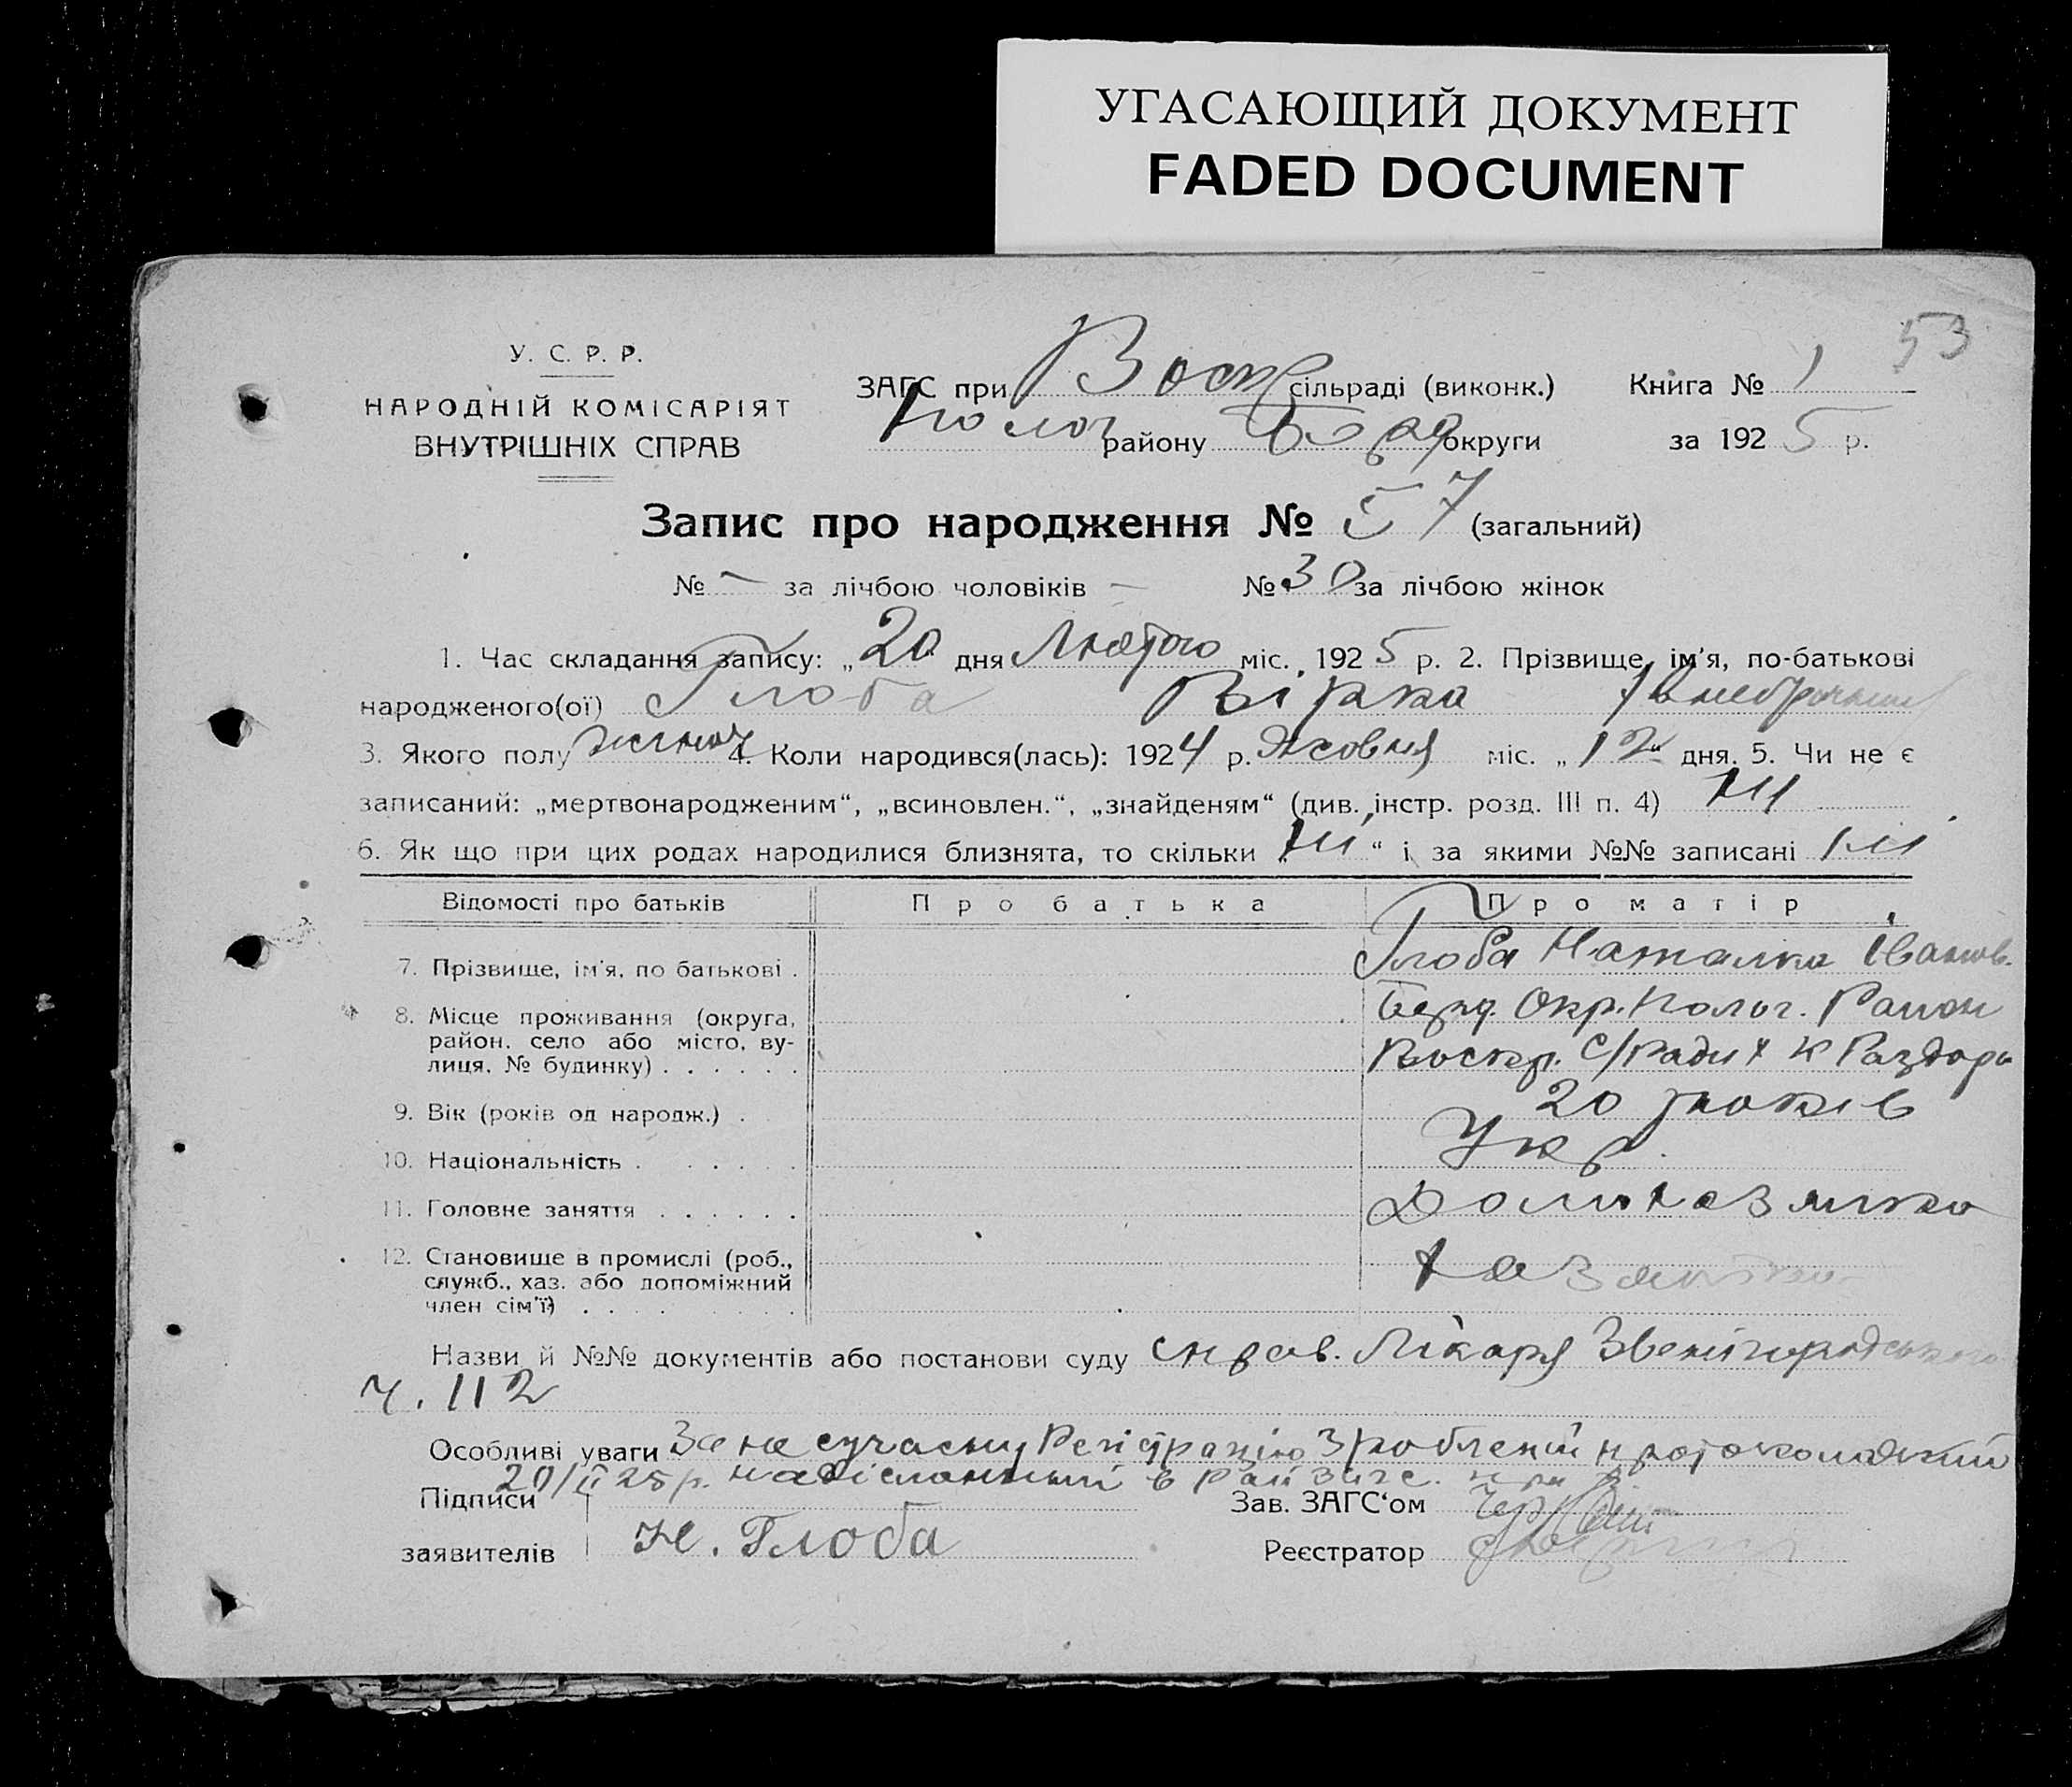 УГАСАЮЩИЙ ДОКУМЕНТ
FADED DOCUMENT
53
У. С. Р. Р.
НАРОДНІЙ КОМІСАРІЯТ
ВНУТРІШНІХ СПРАВ
ЗАГС при Воскр сільраді (виконк.) Книга № 1
Полог району округи за 1925 р.
Запис про народження № 57 (загальний)
№ – за лічбою чоловіків – № 30 за лічбою жінок
1. Час складання запису: „20 дня Лютого міс. 1925 р. 2. Прізвище, ім'я, по-батькові
народженого(ої) Глоба Вірка
3. Якого полу жіноч 4. Коли народився(лась): 1924 р. Жовтня міс. „12“ дня. 5. Чи не є
записаний: „мертвонародженим“, „всиновлен.“, „знайденям“ (див. інстр. розд. III п. 4) ні
6. Як що при цих родах народилися близнята, то скільки „ні“ і за якими №№ записані ні
Відомості про батьків Про батька Про матір
7. Прізвище, ім'я, по батькові . Глоба Наталка Іванов.
8. Місце проживання (округа, район, село або місто, вулиця, № будинку) . . . . . . Окр. Полог. Район
Воскр. С/Ради Х К Раздоры
9. Вік (років од народж.) . 20 років
10. Національність . . . . . Укр.
11. Головне заняття . . . . . . Домохазяйка
12. Становище в промислі (роб., служб., хаз. або допоміжний член сім'ї) . . . . . . хазяйка
Назви й №№ документів або постанови суду справ. Лікаря Звенігородського
ч. 112
Особливі уваги За не сучасну Регістрацію Зроблений
20/II 25 р. надісланний в Рай Загс.
Підписи Зав. ЗАГС'ом
заявителів Н. Глоба Реєстратор